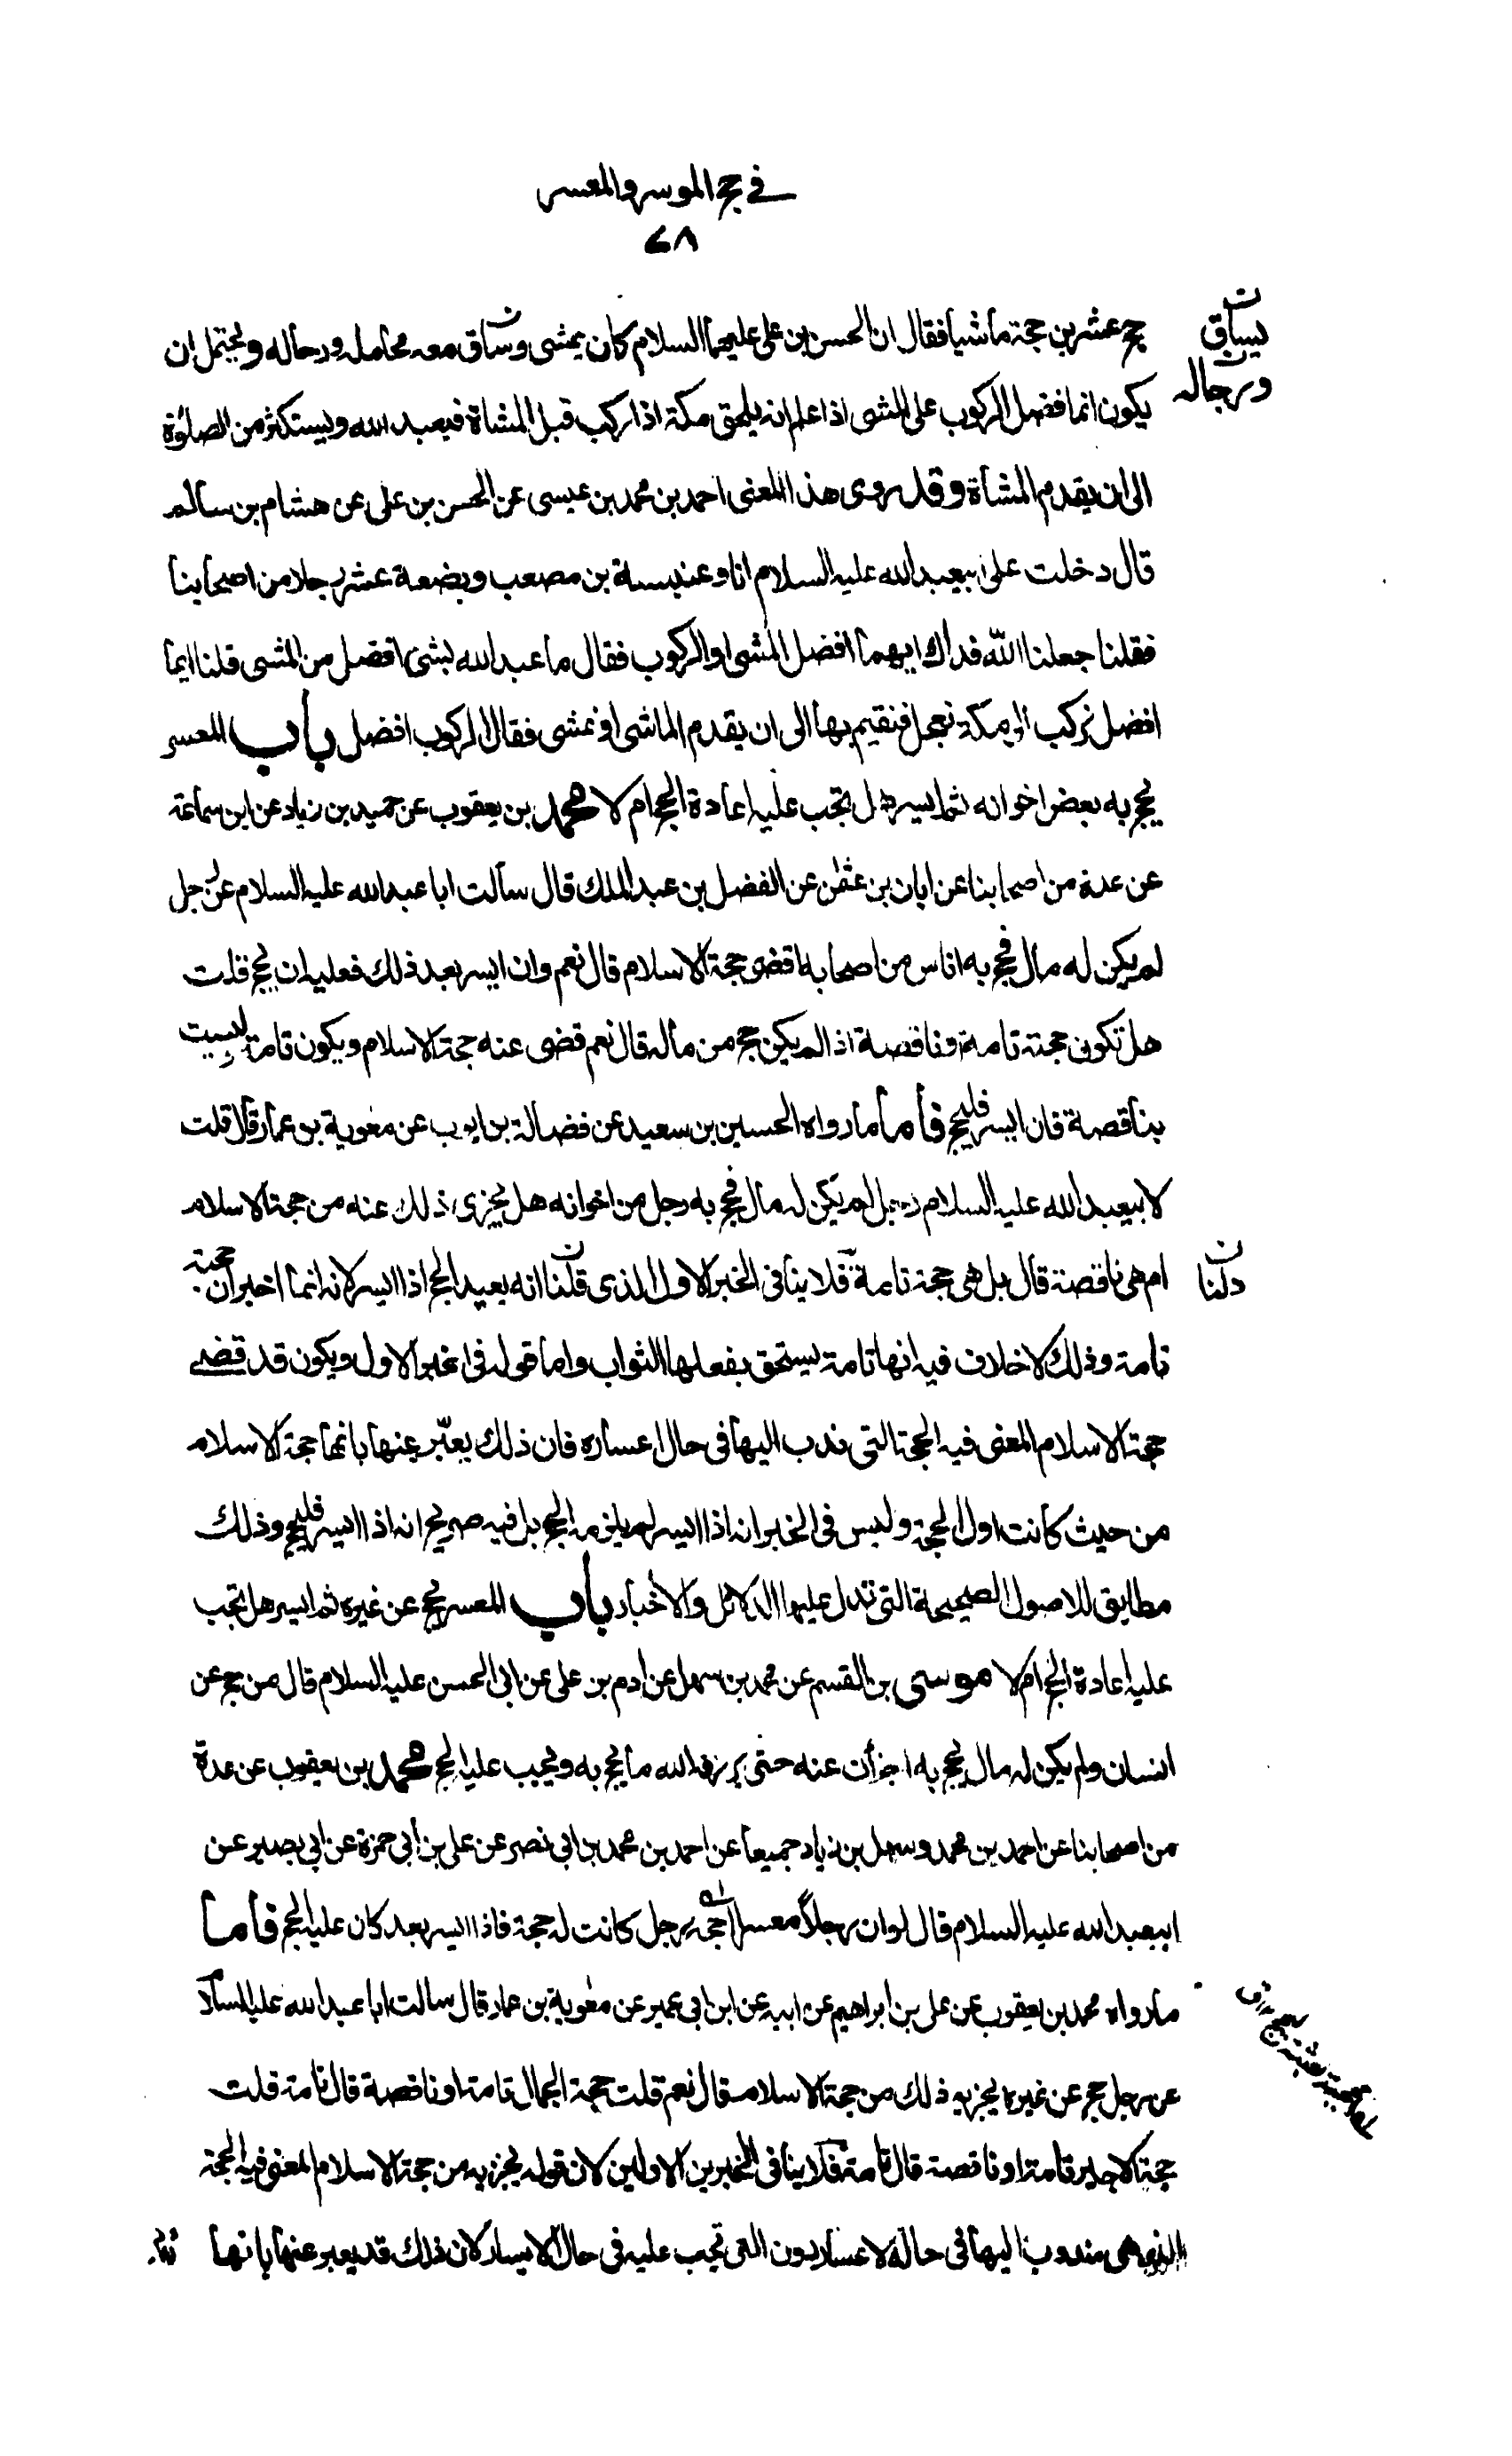 في حج الموسر والمعسر
٧٨
حج عشرين حجة ماشيا فقال ان الحسن بن علي عليهما السلام كان يمشي وساق معه محامله ورحاله ويحتمل ان
يساق
ورحاله
يكون انما فضل الركوب على المشي اذا علم انه يلحق مكة اذا ركب قبل المشاة فيعبد الله ويستكثر من الصلوة
الى ان يقدم المشاة وقد روى هذا المعنى احمد بن محمد بن عيسى عن الحسن بن علي عن هشام بن سالم
قال دخلت على ابيعبد الله عليه السلام انا وعنبسة بن مصعب وبضعة عشر رجلا من اصحابنا
فقلنا جعلنا الله فداك ايهما افضل المشي او الركوب فقال ما عبد الله بشئ افضل من المشي قلنا ايما
افضل نركب الى مكة نعجل فنقيم بها الى ان يقدم الماشي او نمشي فقال الركوب افضل باب المعسر
يحج به بعض اخوانه ثم ايسر هل تجب عليه اعادة الحج ام لا محمد بن يعقوب عن حميد بن زياد عن ابن سماعة
عن عدة من اصحابنا عن ابان بن عثمن عن الفضل بن عبد الملك قال سألت ابا عبد الله عليه السلام عن رجل
لم يكن له مال فحج به اناس من اصحابه اقضى حجة الاسلام قال نعم وان ايسر بعد ذلك فعليه ان يحج قلت
هل تكون حجته تامة او ناقصة اذا لم يكن حج من ماله قال نعم قضى عنه حجة الاسلام ويكون تامة ليست
بناقصة فان ايسر فليحج فاما ما رواه الحسين بن سعيد عن فضالة بن ايوب عن معوية بن عمار قال قلت
لابيعبد الله عليه السلام رجل لم يكن له مال فحج به رجل من اخوانه هل يجزي ذلك عنه من حجة الاسلام
ام هي ناقصة قال بل هي حجة تامة فلا ينافي الخبر الاول الذي قلنا انه يعيد الحج اذا ايسر لانه انما اخبر ان حجته
دلنا
تامة وذلك لا خلاف فيه انها تامة يستحق بفعلها الثواب واما قوله في الخبر الاول ويكون قد قضى
حجة الاسلام المعنى فيه الحجة التي ندب اليها في حال اعساره فان ذلك يعبّر عنها بانها حجة الاسلام
من حيث كانت اول الحجة وليس في الخبر انه اذا ايسر لم يلزمه الحج بل فيه صريح انه اذا ايسر فليحج وذلك
مطابق للاصول الصحيحة التي تدل عليها الدلائل والأخبار باب المعسر يحج عن غيره ثم ايسر هل تجب
عليه اعادة الحج ام لا موسى بن القسم عن محمد بن سهل عن ادم بن علي عن ابي الحسن عليه السلام قال من حج عن
انسان ولم يكن له مال يحج به اجزأت عنه حتى يرزقه الله ما يحج به ويجب عليه الحج محمد بن يعقوب عن عدة
من اصحابنا عن احمد بن محمد وسهل بن زياد جميعا عن احمد بن محمد بن ابي نصر عن علي بن ابي حمزة عن ابي بصير عن
ابيعبد الله عليه السلام قال لو ان رجلاً معسرا احجه رجل كانت له حجة فاذا ايسر بعد كان عليه الحج فاما
ما رواه محمد بن يعقوب عن علي بن ابراهيم عن ابيه عن ابن ابي عمير عن معوية بن عمار قال سالت ابا عبد الله عليه السلا
عن رجل حج عن غيره يجزيه ذلك من حجة الاسلام قال نعم قلت حجة الجمال تامة او ناقصة قال تامة قلت
حجة الاجير تامة او ناقصة قال تامة فلا ينافي الخبرين الاولين لان قوله يجزيه من حجة الاسلام المعنى فيه الحجة
التي هي مندوب اليها في حال الاعسار دون التي تجب عليه في حال الايسار لان ذلك قد يعبر عنها بانها